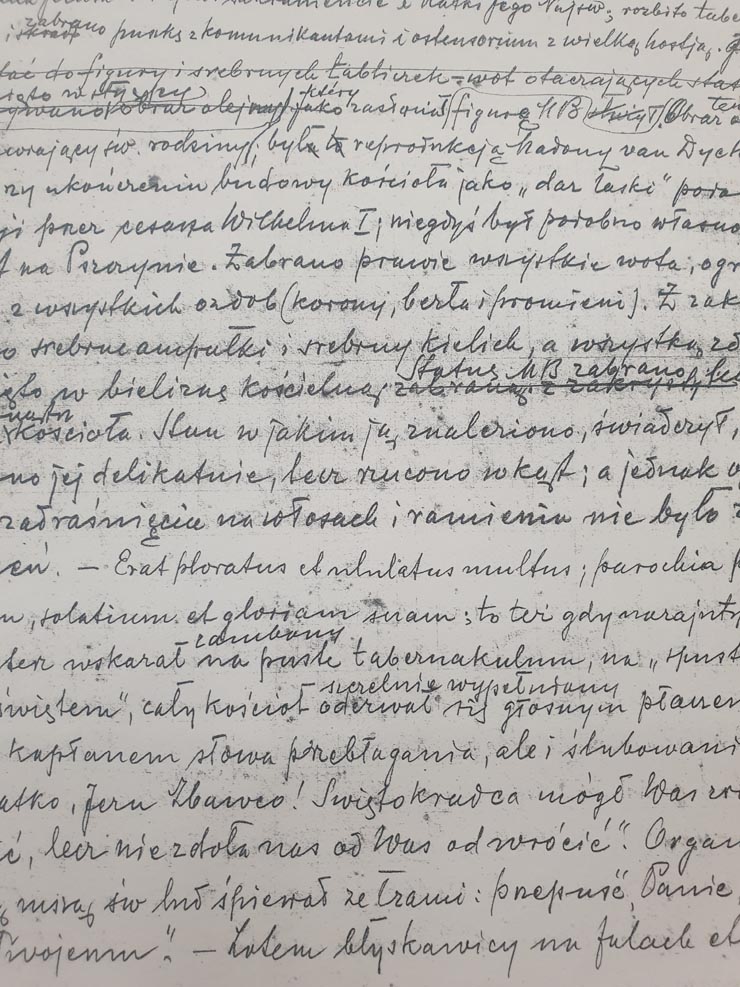 i Matki Jego Najśw; rozbito tabe
zabrano
i skradł puszkę z komunikantami i ostensorium z wielką hostją.
do figury i srebrnych tabliczek-wot otaczających stat
który
obraz olejny jako zasłonił figurę MB służył. Obraz
św. rodzinę, była to reprodukcją Madony van Dyck
ukończeniu budowy kościoła jako „dar łaski" poda
przez cesarza Wilhelma I; niegdyś był podobno własno
na Pszczynie. Zabrano prawie wszystkie wota, ogr
z wszystkich ozdób (korony, berła i promieni). Z zak
o srebrne ampułki i srebrny kielich, a wszystką
Statuę MB zabrano,
w bieliznę kościelną, zabraną z zakrystji
kościoła. Stan w jakim ją znaleziono, świadczył,
no jej delikatnie, lecz rzucono w kąt; a jednak
zadraśnięcia na włosach i ramieniu nie było
zeń. — Erat ploratus et ululatus multus; parochia
m, solatium et gloriam suam; to też gdy nazajutrz
z ambony
wskazał na puste tabernakulum, na „spust
szczelnie wypełniony
świętem", cały kościół oderwał się głośnym płaczem
kapłanem słowa przebłagania, ale i ślubowani
atko, Jezu Zbawco! Świętokradca mógł Was
ć, lecz nie zdoła nas od Was odwrócić". Organ
mszą św lud śpiewał ze łzami: przepuść, Panie,
Twojemu". — Lotem błyskawicy na falach et